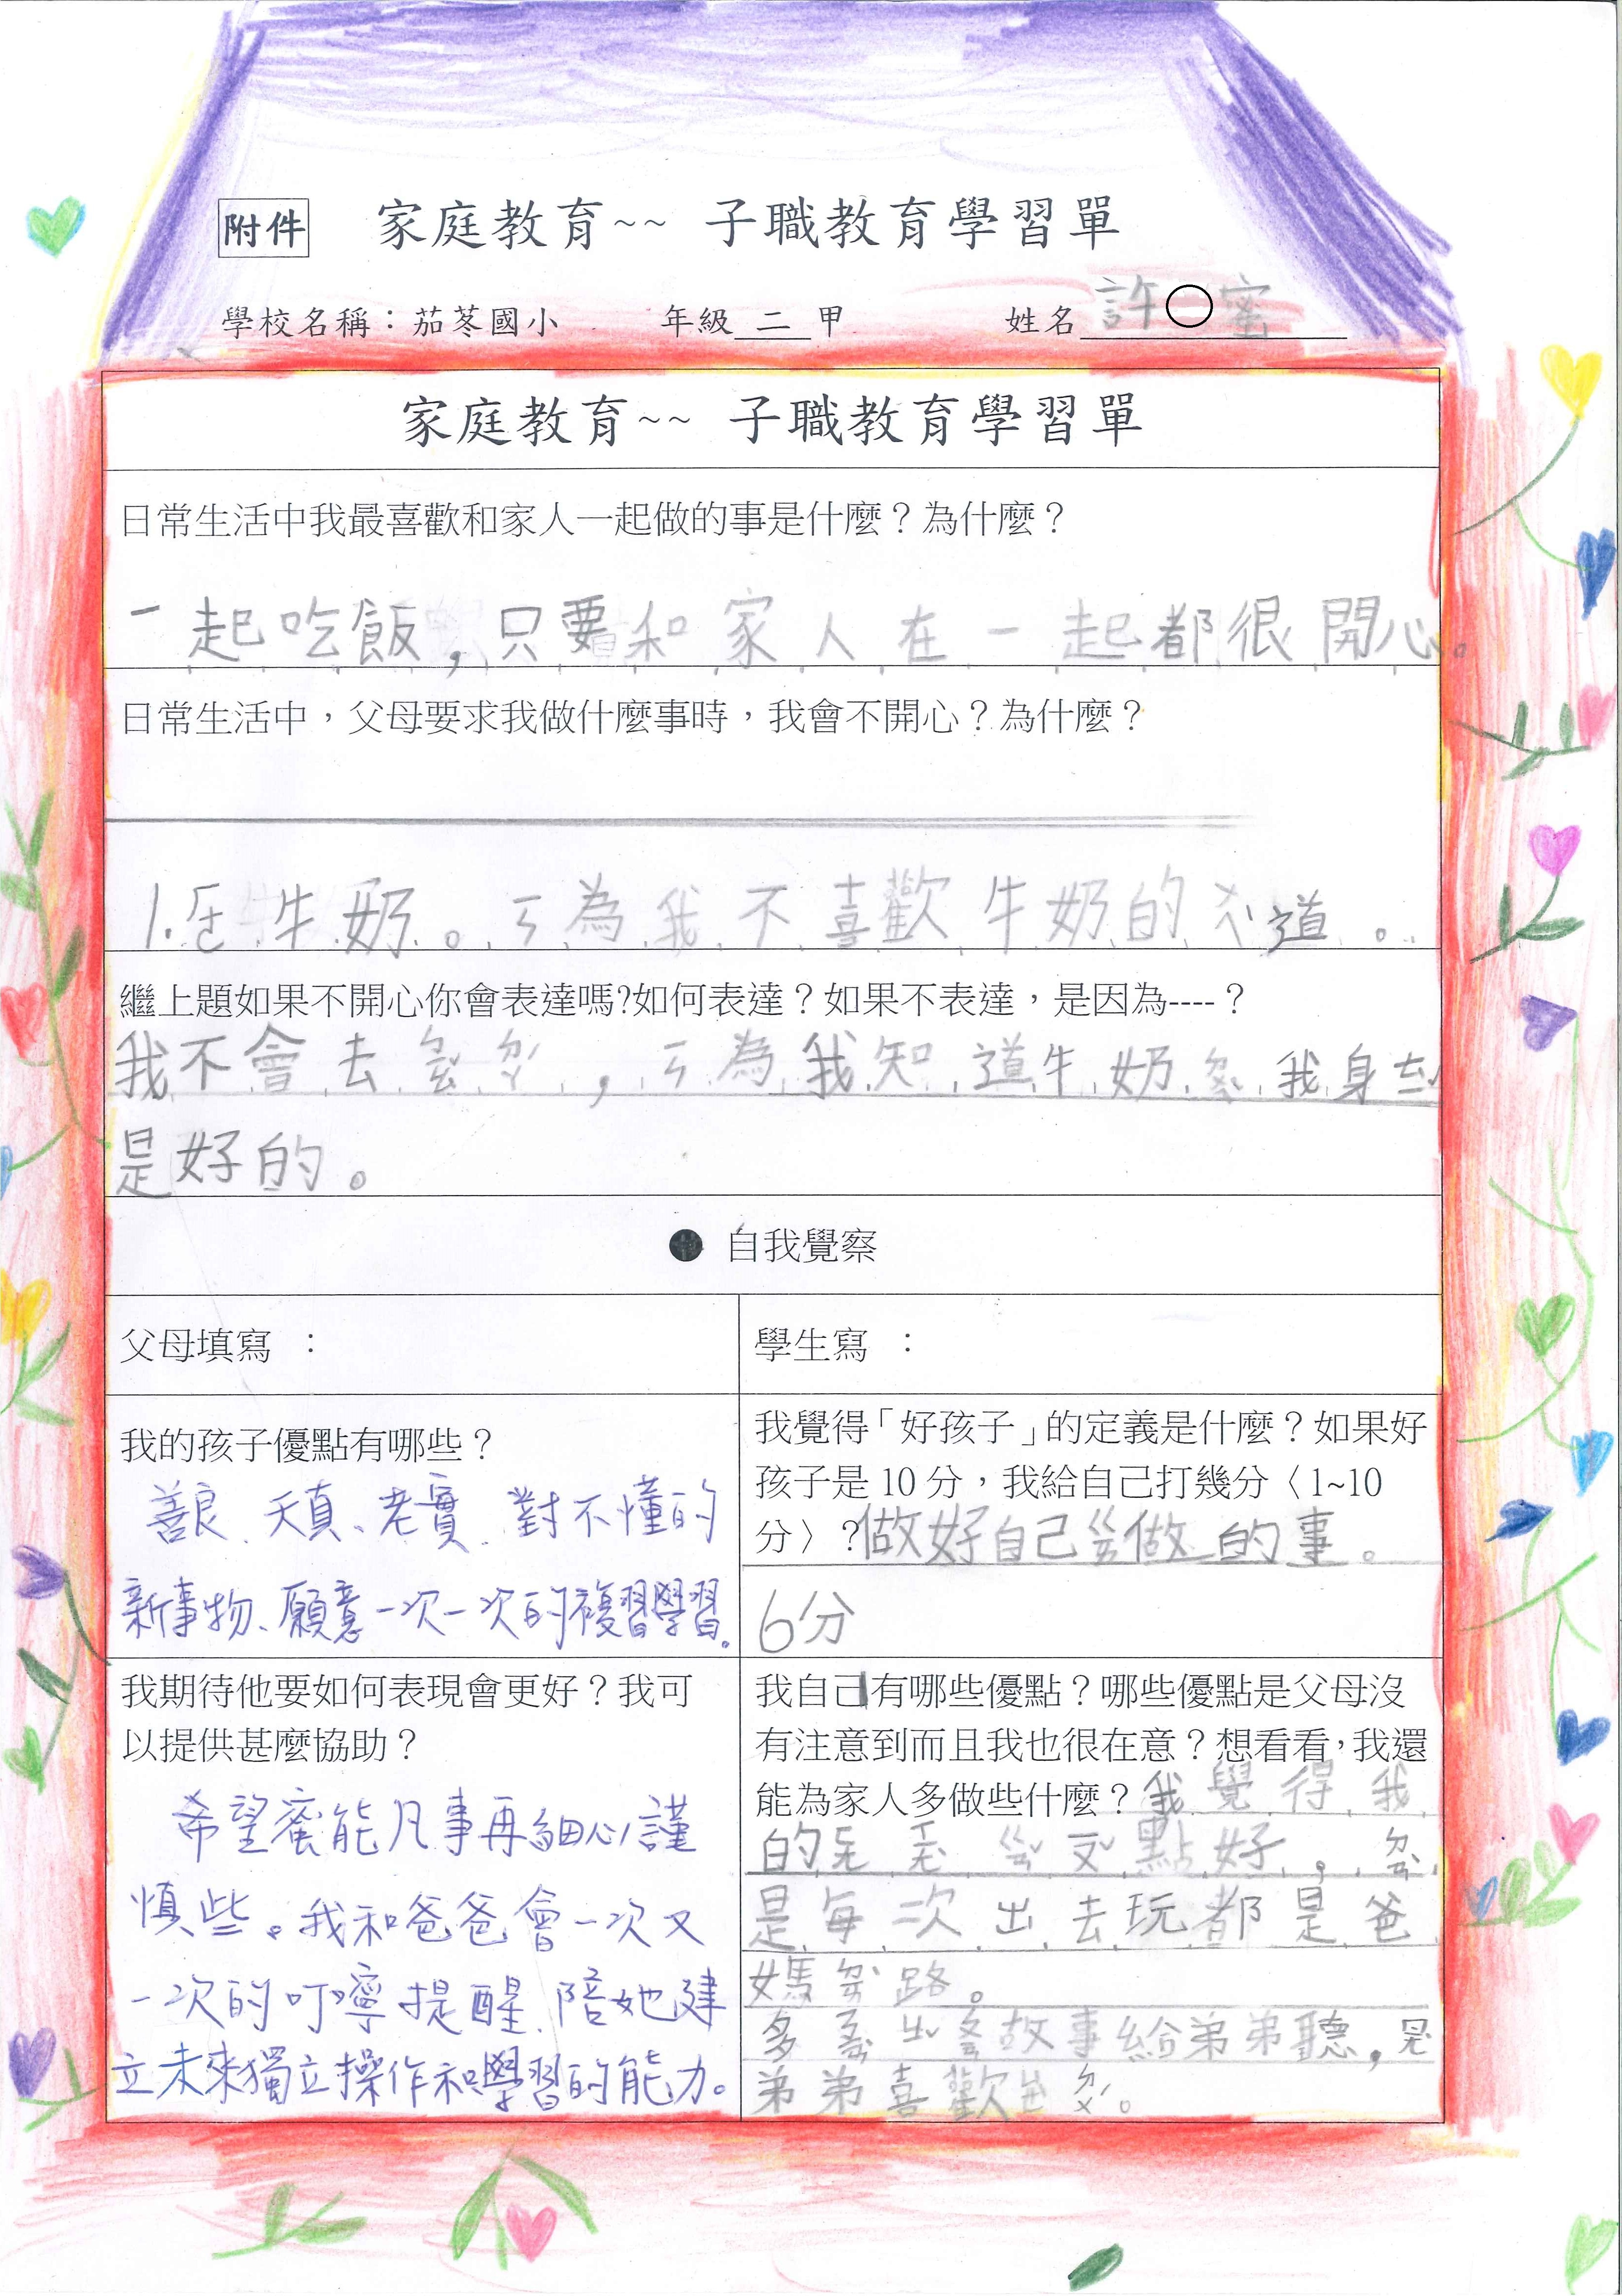 附件 家庭教育~~ 子職教育學習單
學校名稱：茄苳國小 年級 二 甲 姓名 許○蜜
家庭教育~~ 子職教育學習單
日常生活中我最喜歡和家人一起做的事是什麼？為什麼？
一起吃飯，只要和家人在一起都很開心。
日常生活中，父母要求我做什麼事時，我會不開心？為什麼？
1. 牛奶。ㄧㄣ為我不喜歡牛奶的 道。
繼上題如果不開心你會表達嗎?如何表達？如果不表達，是因為----？
我不會去 ，ㄧㄣ為我知道牛奶ㄉㄨㄟˋ我身
是好的。
● 自我覺察
父母填寫 ：
學生寫 ：
我的孩子優點有哪些？
善良、天真、老實、對不懂的
新事物、願意一次一次的複習學習。
我覺得「好孩子」的定義是什麼？如果好
孩子是 10 分，我給自己打幾分〈 1~10
分〉？做好自己 做的事。
6分
我期待他要如何表現會更好？我可
以提供甚麼協助？
希望蜜能凡事再細心謹
慎些。我和爸爸會一次又
一次的叮嚀提醒、陪她建
立未來獨立操作和學習的能力。
我自己有哪些優點？哪些優點是父母沒
有注意到而且我也很在意？想看看，我還
能為家人多做些什麼？我覺得我
的 點好，
是每次出去玩都是爸
媽 路。
多 故事給弟弟聽，
弟弟喜歡